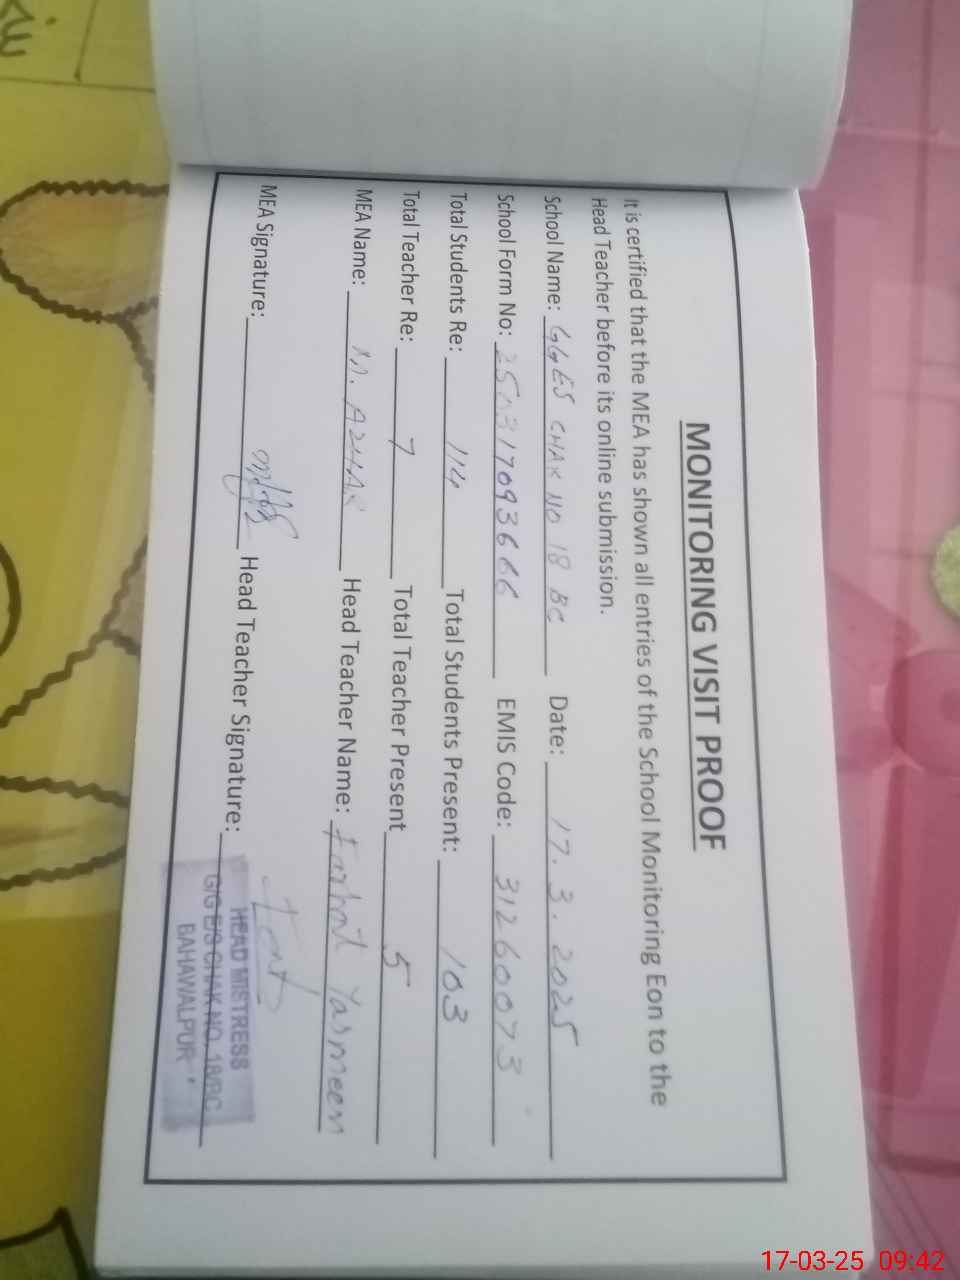 MONITORING VISIT PROOF
It is certified that the MEA has shown all entries of the School Monitoring Eon to the
Head Teacher before its online submission.
School Name: GGES CHAK NO 18 BC Date: 17.3.2025
School Form No: 250317093666 EMIS Code: 31260073
Total Students Re: 114 Total Students Present: 103
Total Teacher Re: 7 Total Teacher Present 5
MEA Name: M. AZHAR Head Teacher Name: Farhat Yasmeen
MEA Signature: Head Teacher Signature:
HEAD MISTRESS
G/G E/S CHAK NO. 18/BC
BAHAWALPUR
17-03-25 09:42